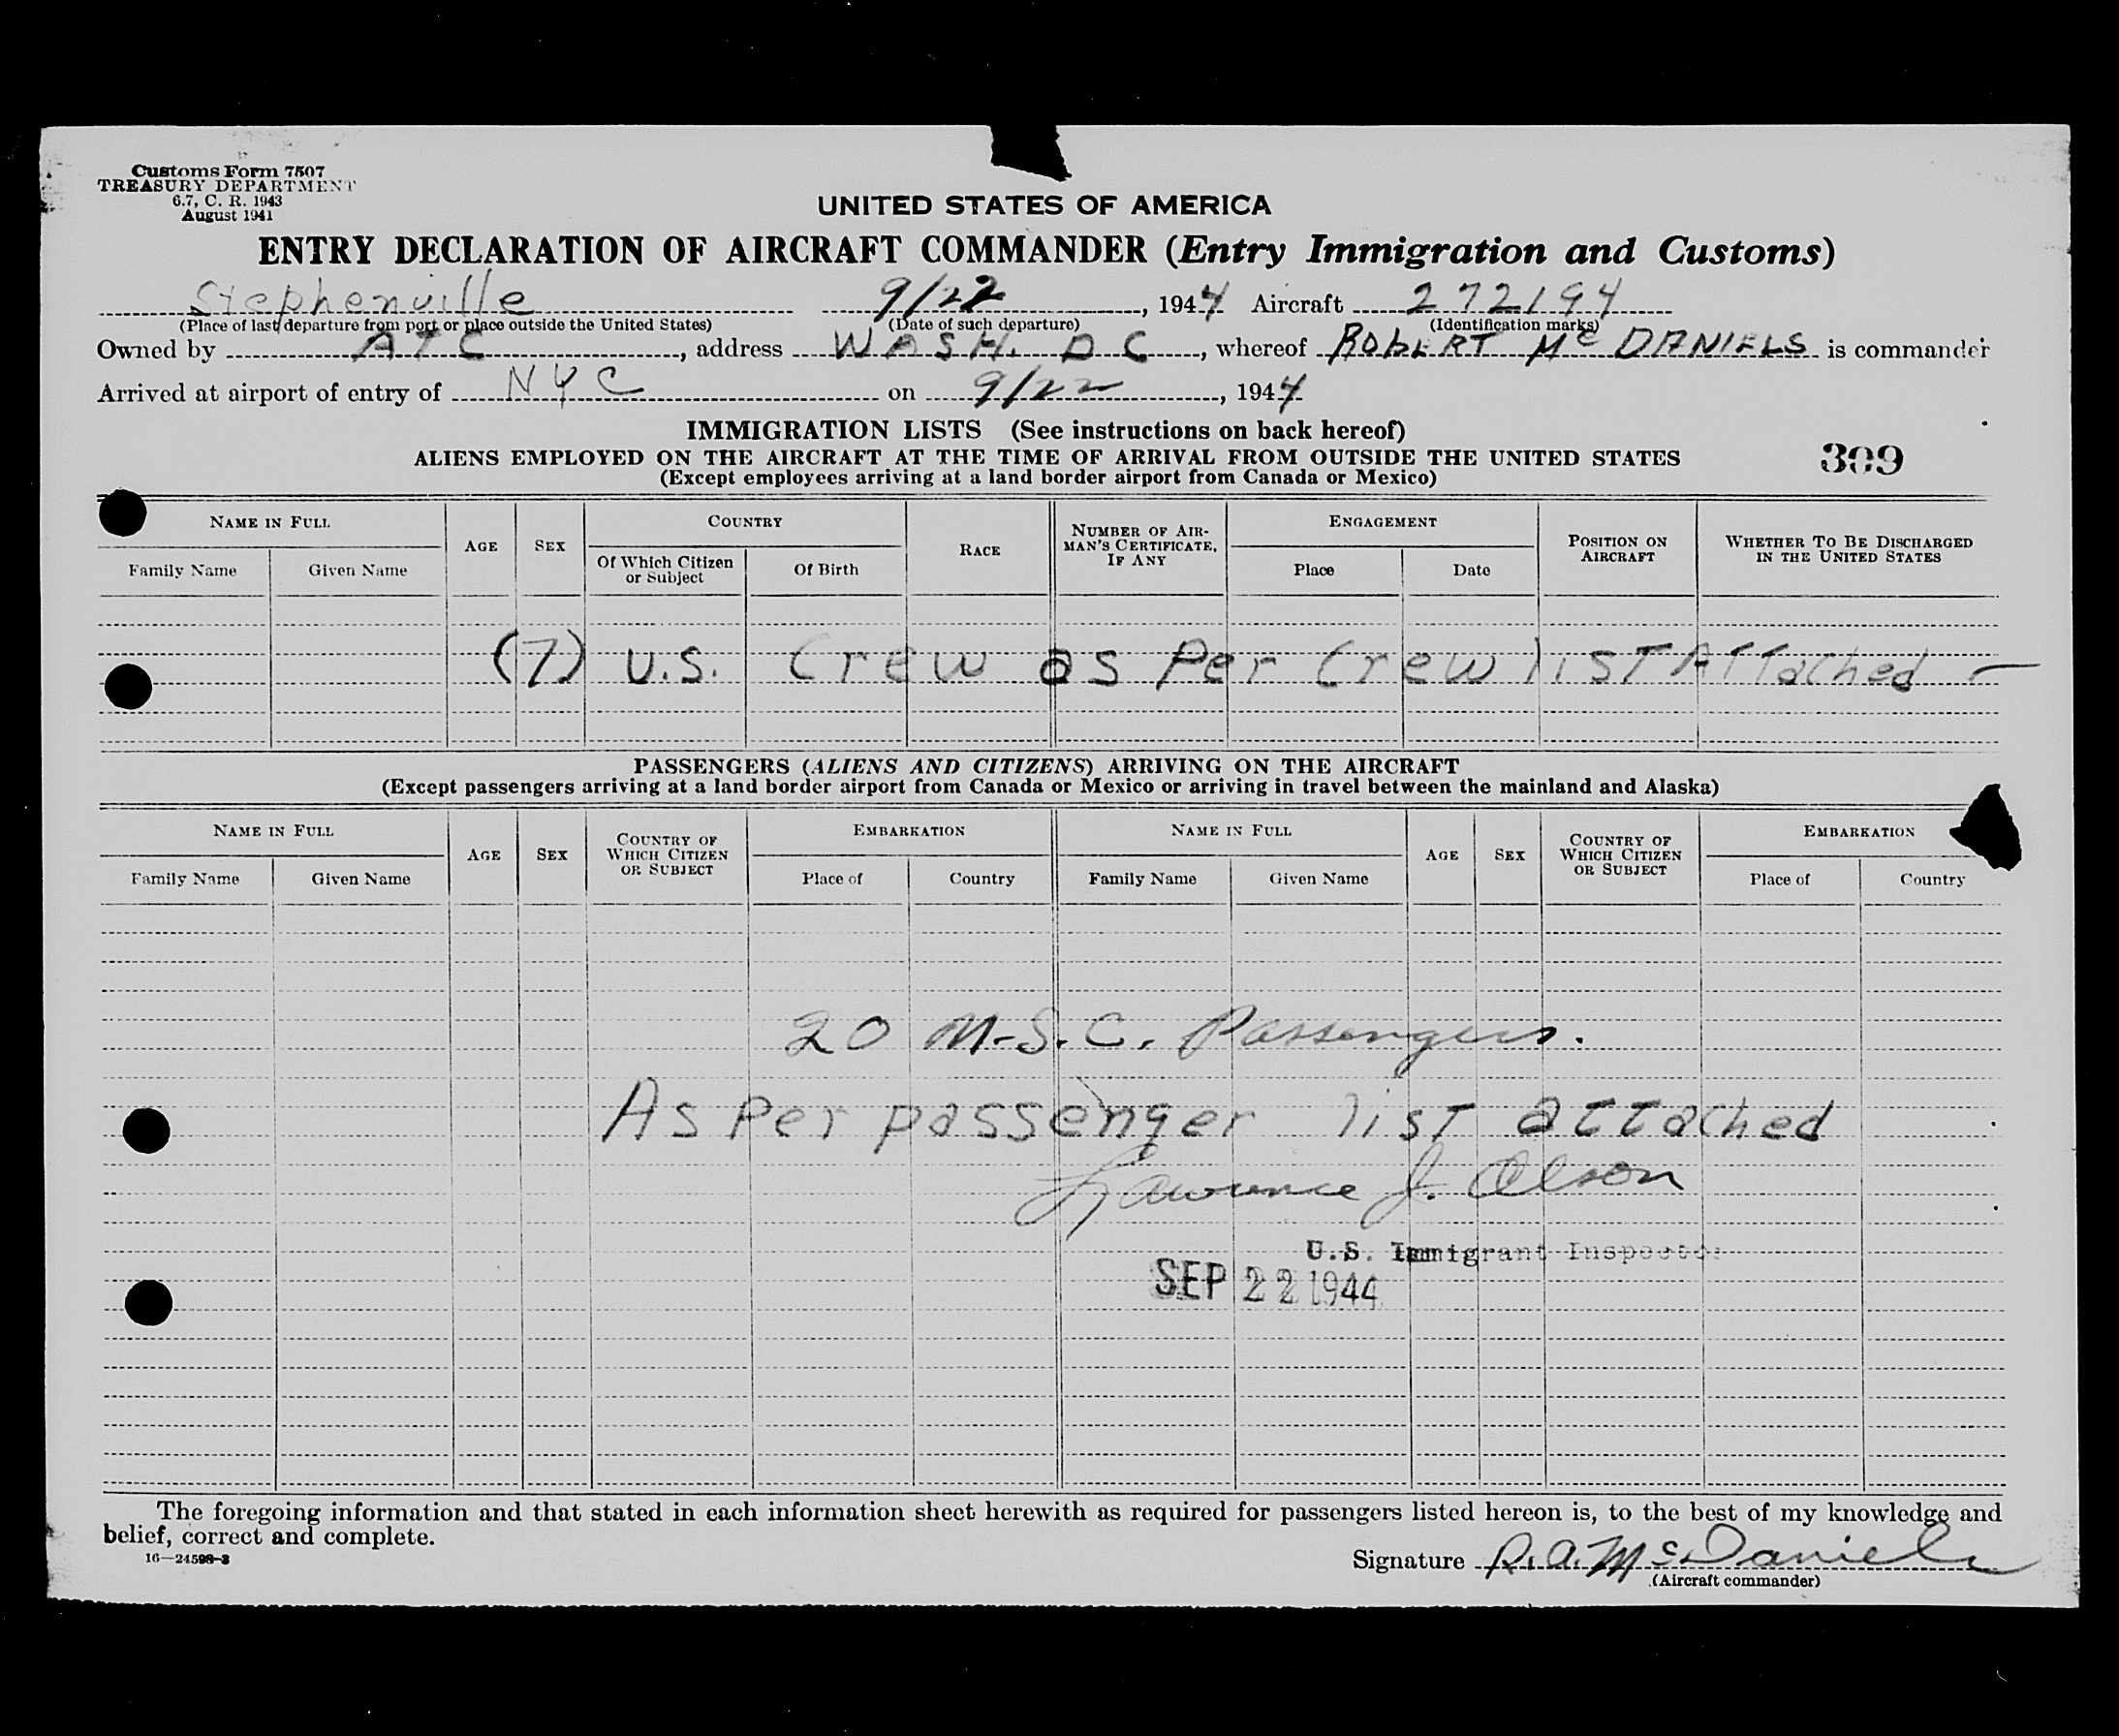 Customs Form 7507
TREASURY DEPARTMENT
6.7, C. R. 1943
August 1941
UNITED STATES OF AMERICA
ENTRY DECLARATION OF AIRCRAFT COMMANDER (Entry Immigration and Customs)
Stephenville 9/22, 1944 Aircraft 272194
(Place of last departure from port or place outside the United States) (Date of such departure) (Identification marks)
Owned by ATC, address WASH. DC, whereof ROBERT Mc DANIELS is commander
Arrived at airport of entry of NYC on 9/22, 1944
IMMIGRATION LISTS (See instructions on back hereof)
ALIENS EMPLOYED ON THE AIRCRAFT AT THE TIME OF ARRIVAL FROM OUTSIDE THE UNITED STATES 309
(Except employees arriving at a land border airport from Canada or Mexico)
NAME IN FULL
Family Name Given Name
AGE
SEX
COUNTRY
Of Which Citizen or Subject Of Birth
RACE
NUMBER OF AIR-
MAN'S CERTIFICATE,
IF ANY
ENGAGEMENT
Place Date
POSITION ON
AIRCRAFT
WHETHER TO BE DISCHARGED
IN THE UNITED STATES
(7) U.S. Crew as Per Crew list Attached —
PASSENGERS (ALIENS AND CITIZENS) ARRIVING ON THE AIRCRAFT
(Except passengers arriving at a land border airport from Canada or Mexico or arriving in travel between the mainland and Alaska)
NAME IN FULL
Family Name Given Name
AGE
SEX
COUNTRY OF
WHICH CITIZEN
OR SUBJECT
EMBARKATION
Place of Country
NAME IN FULL
Family Name Given Name
AGE
SEX
COUNTRY OF
WHICH CITIZEN
OR SUBJECT
EMBARKATION
Place of Country
20 M.S.C. Passengers.
As Per passenger list attached
Lawrence J. Olson
U.S. Immigrant Inspector
SEP 22 1944
The foregoing information and that stated in each information sheet herewith as required for passengers listed hereon is, to the best of my knowledge and
belief, correct and complete.
16—24598-3
Signature R.A. McDaniels
(Aircraft commander)